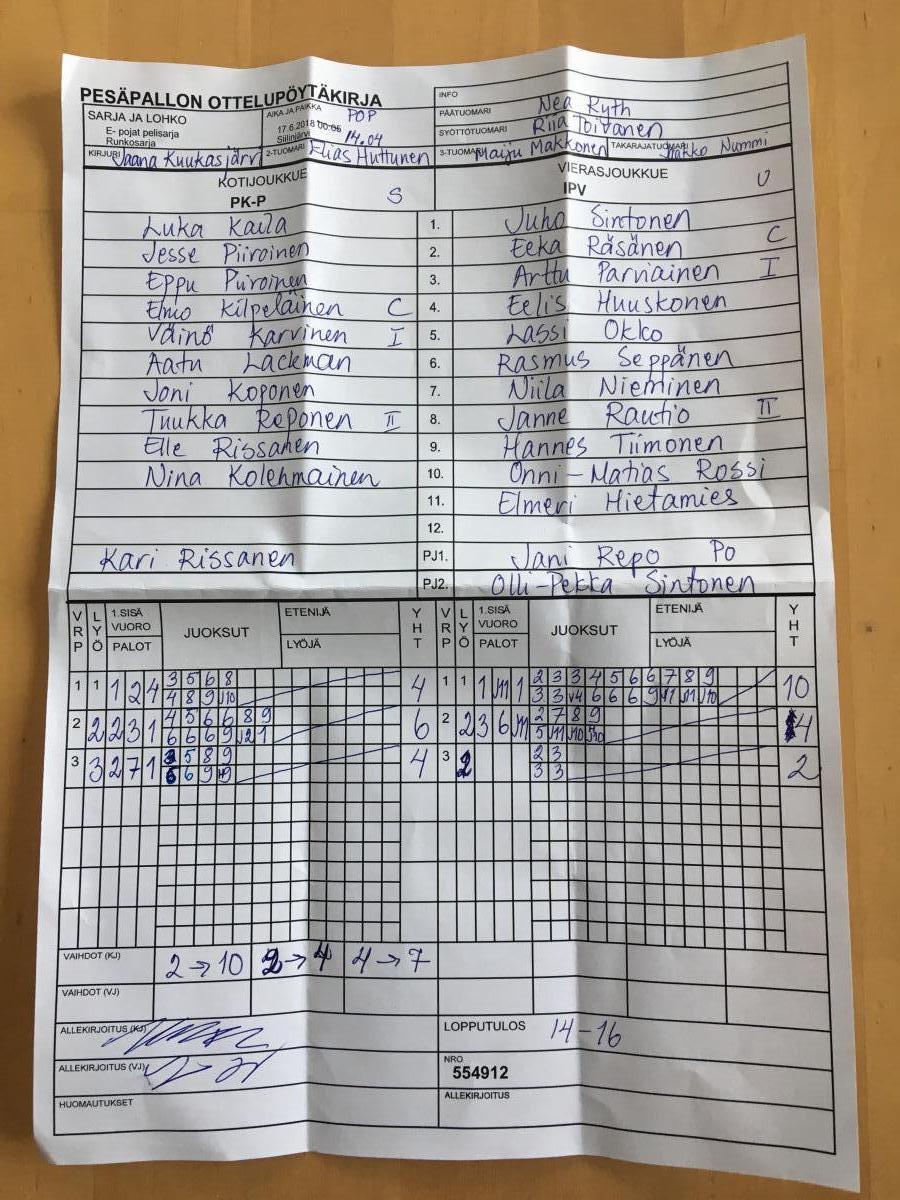 PESÄPALLON OTTELUPÖYTÄKIRJA
SARJA JA LOHKO
E- pojat pelisarja
Runkosarja
AIKA JA PAIKKA POP
17.6.2018 00:05 14.04
Siilinjärvi
KIRJURI Jaana Kuukasjärvi
2-TUOMARI Elias Huttunen
INFO
PÄÄTUOMARI Nea Ryth
SYÖTTÖTUOMARI Riia Toivanen
3-TUOMARI Maiju Makkonen
TAKARAJATUOMARI Nummi
KOTIJOUKKUE S
PK-P
VIERASJOUKKUE U
IPV
Luka Kaila 1. Juho Sintonen
Jesse Piiroinen 2. Eeka Räsänen C
Eppu Piiroinen 3. Arttu Parviainen I
Elmo Kilpeläinen C 4. Eelis Huuskonen
Väinö Karvinen I 5. Lassi Okko
Aatu Lackman 6. Rasmus Seppänen
Joni Koponen 7. Niila Nieminen
Tuukka Reponen II 8. Janne Rautio II
Elle Rissanen 9. Hannes Tiimonen
Nina Kolehmainen 10. Onni-Matias Rossi
11. Elmeri Hietamies
12.
Kari Rissanen PJ1. Jani Repo Po
PJ2. Olli-Pekka Sintonen
VRP LYÖ 1.SISÄ VUORO PALOT JUOKSUT ETENIJÄ LYÖJÄ YHT VRP LYÖ 1.SISÄ VUORO PALOT JUOKSUT ETENIJÄ LYÖJÄ YHT
1 1 1 2 4 3 5 6 8 4 1 1 1 1 2 3 3 4 5 6 6 7 8 9 10
4 8 9 3 3 6 6 6 9
2 2 2 3 1 4 5 6 6 8 9 6 2 2 3 6 2 7 8 9 4
6 6 6 9 1 5
3 3 2 7 1 5 8 9 4 3 2 2 3 2
6 9 3 3
VAIHDOT (KJ) 2→10 2→4 4→7
VAIHDOT (VJ)
ALLEKIRJOITUS (KJ)
LOPPUTULOS 14-16
ALLEKIRJOITUS (VJ)
NRO
554912
HUOMAUTUKSET
ALLEKIRJOITUS